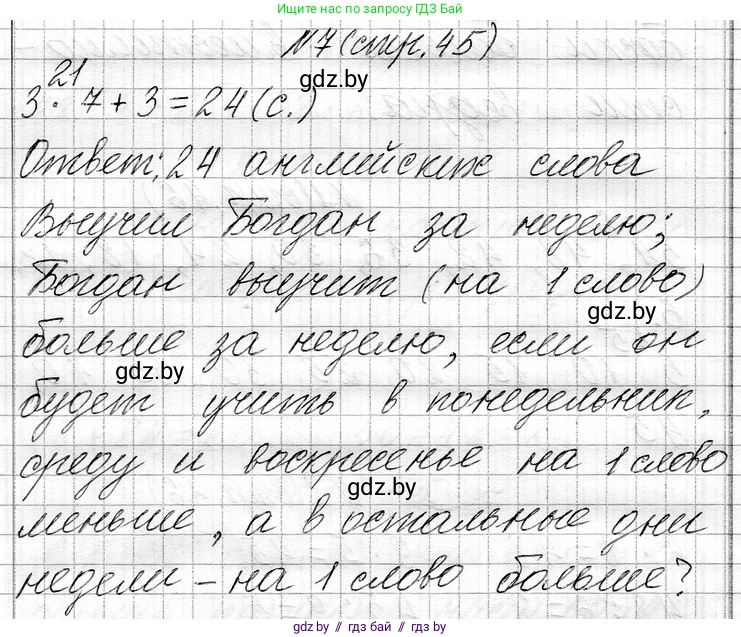 Ищите нас по запросу ГДЗ Бай
№7 (стр. 45)
21
3 · 7 + 3 = 24 (с.)
gdz.by
Ответ: 24 английских слова
Выучил Богдан за неделю;
Богдан выучит (на 1 слово)
gdz.by
больше за неделю, если он
gdz.by
будет учить в понедельник,
среду и воскресенье на 1 слово
gdz.by
меньше, а в остальные дни
недели – на 1 слово больше?
gdz.by // гдз бай // gdz.by